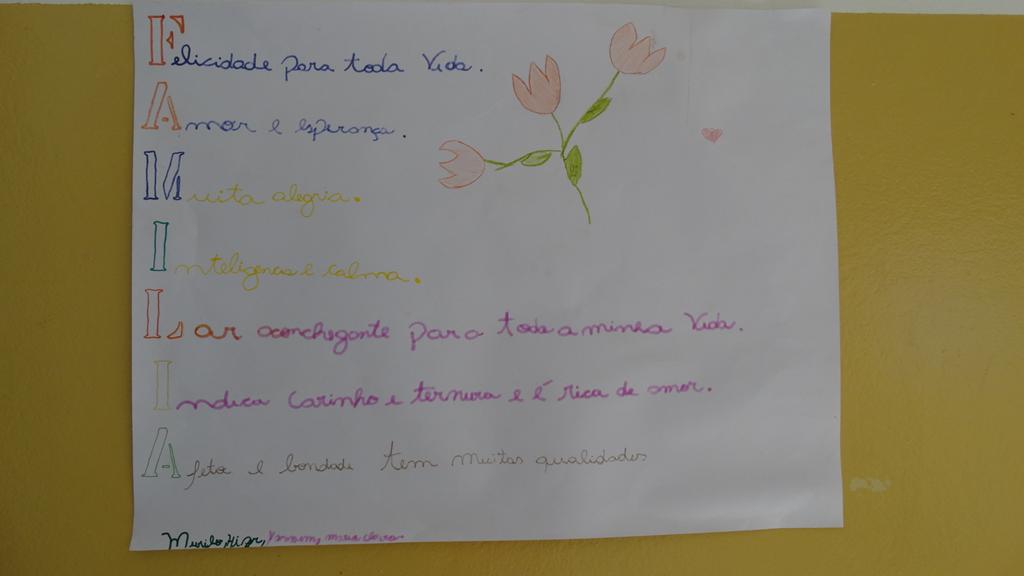 Felicidade para toda Vida.
Amor e esperança.
Muita alegria.
Inteligencas e calma.
Lar aconchegante para toda a minha Vida.
Indica Carinho e ternura e é rica de amor.
Afeto e bondade tem muitas qualidades
Murilo,